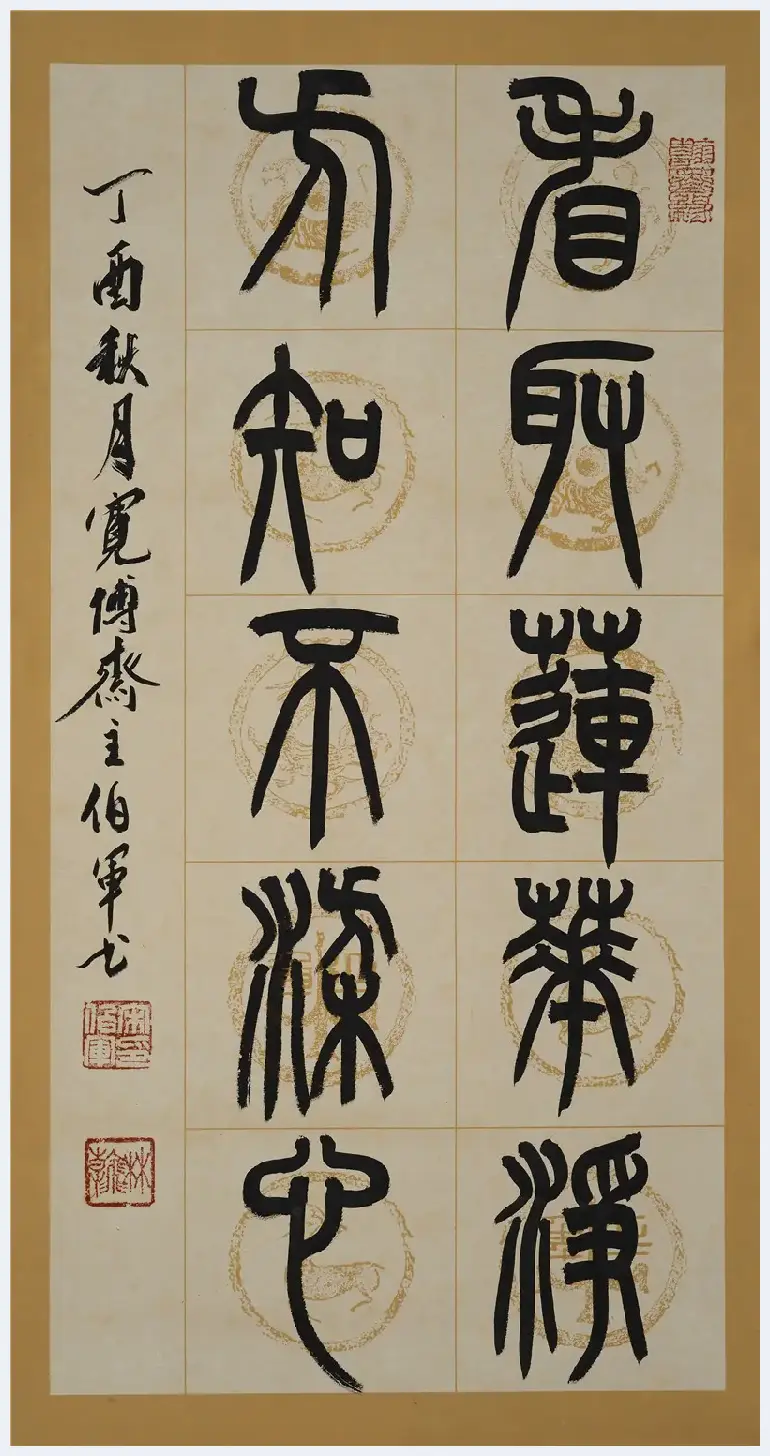 看取蓮華淨
方知不染心
丁酉秋月寬博齋主伯軍书